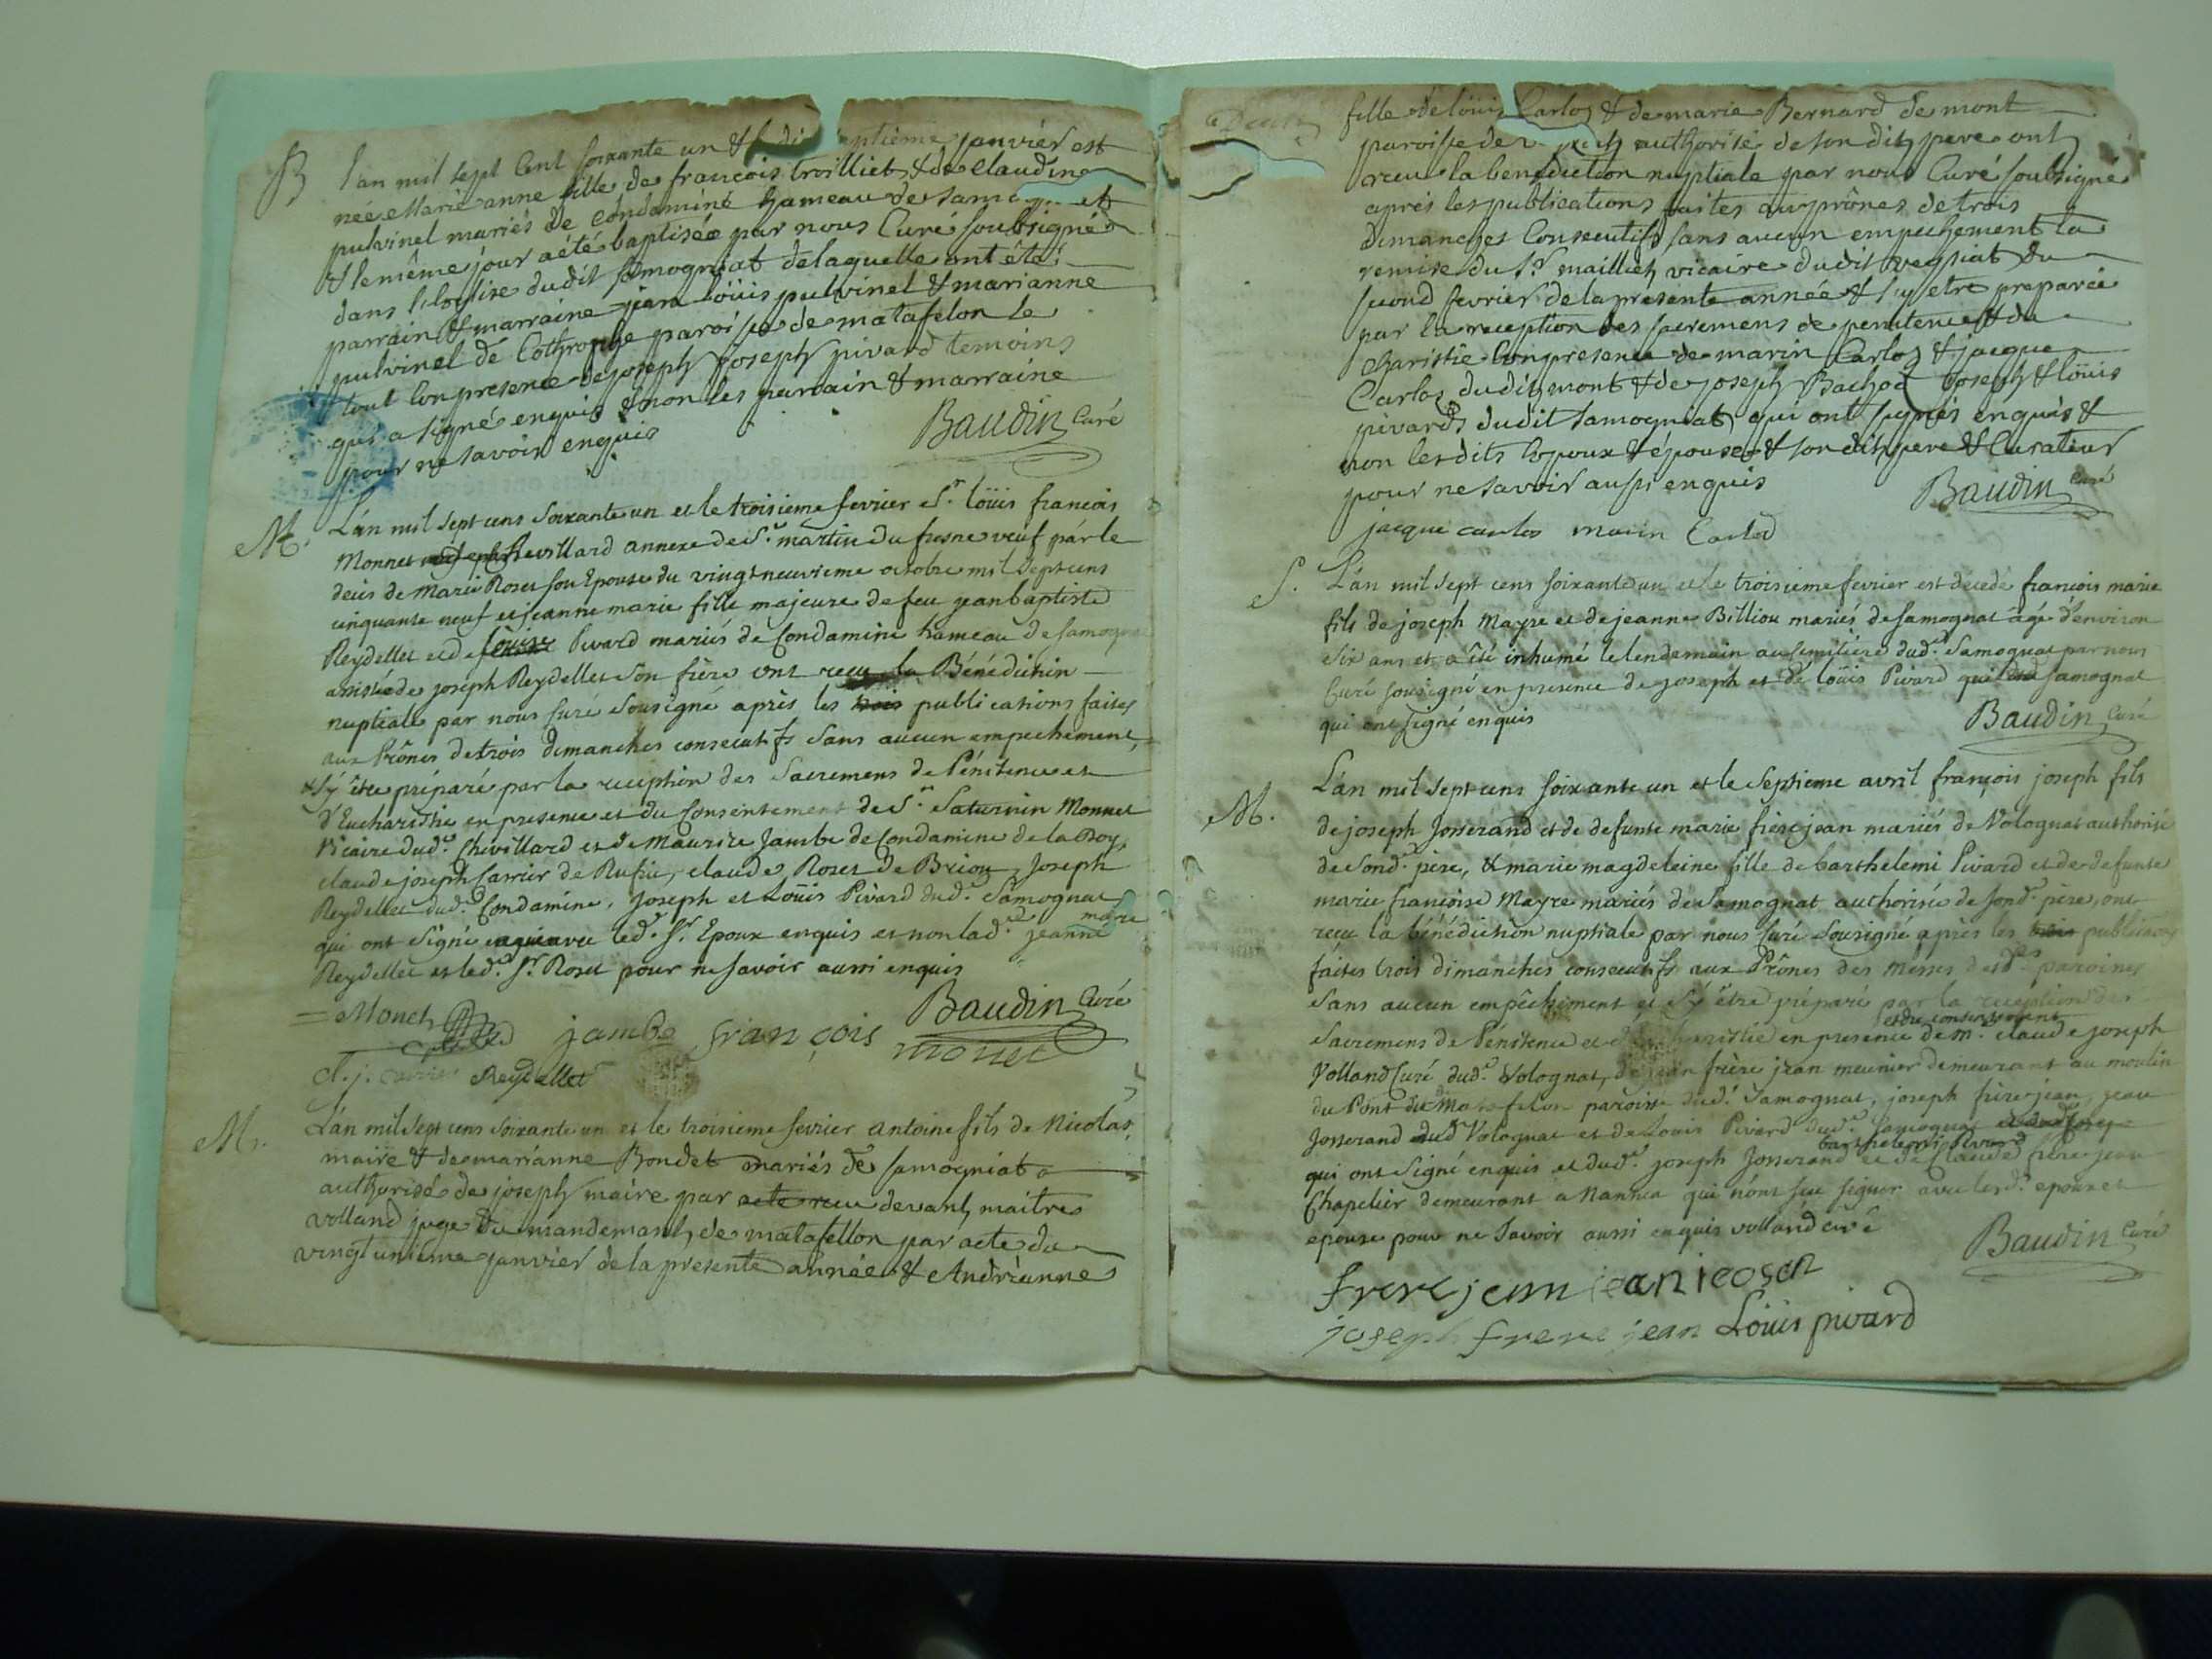 B
l'an mil sept Cent soixante un & le di eptième janvier est
née Marie anne fille de francois troilliet & de Claudine
pulvinel mariés de Condamine hameau de Samog et
& le même jour a été baptisée par nous Curé soubsigné
dans l'Eglise dudit samogniat de laquelle ont été
parrain & marraine jean loüis pulvinel & marianne
pulvinel de Cothrophe paroisse de matafelon le
tout en presence de joseph joseph pivard temoins
qui a signé enquis & non les parrain & marraine
pour ne savoir enquis
Baudin Curé
M.
L'an mil sept cens soixante un et le troisieme fevrier Sr. loüis francois
Monnet Chevillard annexe de St. martin du fresne veuf par le
deces de Marie Roset son Epouse du vingt neuvieme octobre mil sept cens
cinquante neuf et jeanne marie fille majeure de feu jean baptiste
Reydellet et de Pivard mariés de Condamine hameau de samogna
assistée de joseph Reydellet son frère ont recu la Bénédiction
nuptiale par nous curé sousigné après les trois publications faites
aux Prônes de trois dimanches consecutifs sans aucun empechement,
& s'y être préparé par la reception des Sacremens de Pénitence et
d'Eucharistie en presence et du Consentement de Sr. Saturnin Monnet
Vicaire dud. Chevillard et de Maurice Jambe de Condamine de la Doy,
claude joseph Carrier de Ruffieu, claude Roset de Brion, Joseph
Reydellet dud. Condamine, Joseph et Loüis Pivard dud. Samognat
qui ont signé avec led. Sr. Epoux enquis et non lad. jeanne marie
Reydellet et led. Sr. Roset pour ne savoir aussi enquis
Monet jambe françois Baudin Curé
monet
Reydellet
M.
L'an mil sept cens soixante un et le troisieme fevrier antoine fils de Nicolas
maire & de marianne Bondet mariés de samogniat
authorisé de joseph maire par acte recu devant maitre
volland juge du mandemant de matafellon par acte du
vingt unième janvier de la presente année & Andrianne
fille de loüis Carloz & de marie Bernard de mont
paroisse de authorisé de son dit pere ont
recu la benediction nuptiale par nous Curé soubsigné
aprés les publications faites aux prônes de trois
dimanches Consecutifs sans aucun empechement la
remise du Sr. mailliet vicaire dudit veyziat du
second fevrier de la presente année & s'y etre preparée
par la reception des sacremens de penitence & du
Charistie en presence de marin Carloz & jacque
Carloz dudit mont & de joseph Bachod joseph & loüis
pivards dudit Samogniat qui ont signés enquis &
non lesdits Epoux & épouse & son dit pere & Curateur
pour ne savoir aussi enquis
Baudin Curé
jacque carlos marin Carlod
S.
L'an mil sept cens soixante un et le troisieme fevrier est décedé françois marie
fils de joseph Mayre et de jeanne Billion mariés de samognat âgé d'environ
six ans et a été inhumé le lendemain au cimitière dud. Samognat par nous
Curé sousigné en presence de joseph et de loüis Pivard samognat
qui ont signé enquis
Baudin Curé
M.
L'an mil sept cens soixante un et le septieme avril françois joseph fils
de joseph Josserand et de defunte marie frère jean mariés de Volognat authorisé
de sond. père, & marie magdeleine fille de barthelemi Pivard et de defunte
marie françoise Mayre mariés de Samognat authorisée de sond. père, ont
recu la bénédiction nuptiale par nous Curé sousigné après les trois publications
faites trois dimanches consecutifs aux Prônes des Messes desd. paroisses
sans aucun empêchement et s'y être préparé par la reception des
Sacremens de Pénitence et en presence et du consentement de Mr. claude joseph
Volland Curé dud. Volognat, de jean frère jean meunier demeurant au moulin
du Pont de Matafelon paroisse dud. Samognat, joseph frère jean, jean
Josserand dud. Volognat et de Louis Pivard dud. Samognat
qui ont signé enquis et dud. joseph Josserand barthelemi Pivard et de Claude frère jean
Chapelier demeurant a Nantua qui n'ont seu signer avec lesd. epoux et
epouse pour ne savoir aussi enquis volland curé
Baudin Curé
frere jean
joseph frere jean Loüis pivard